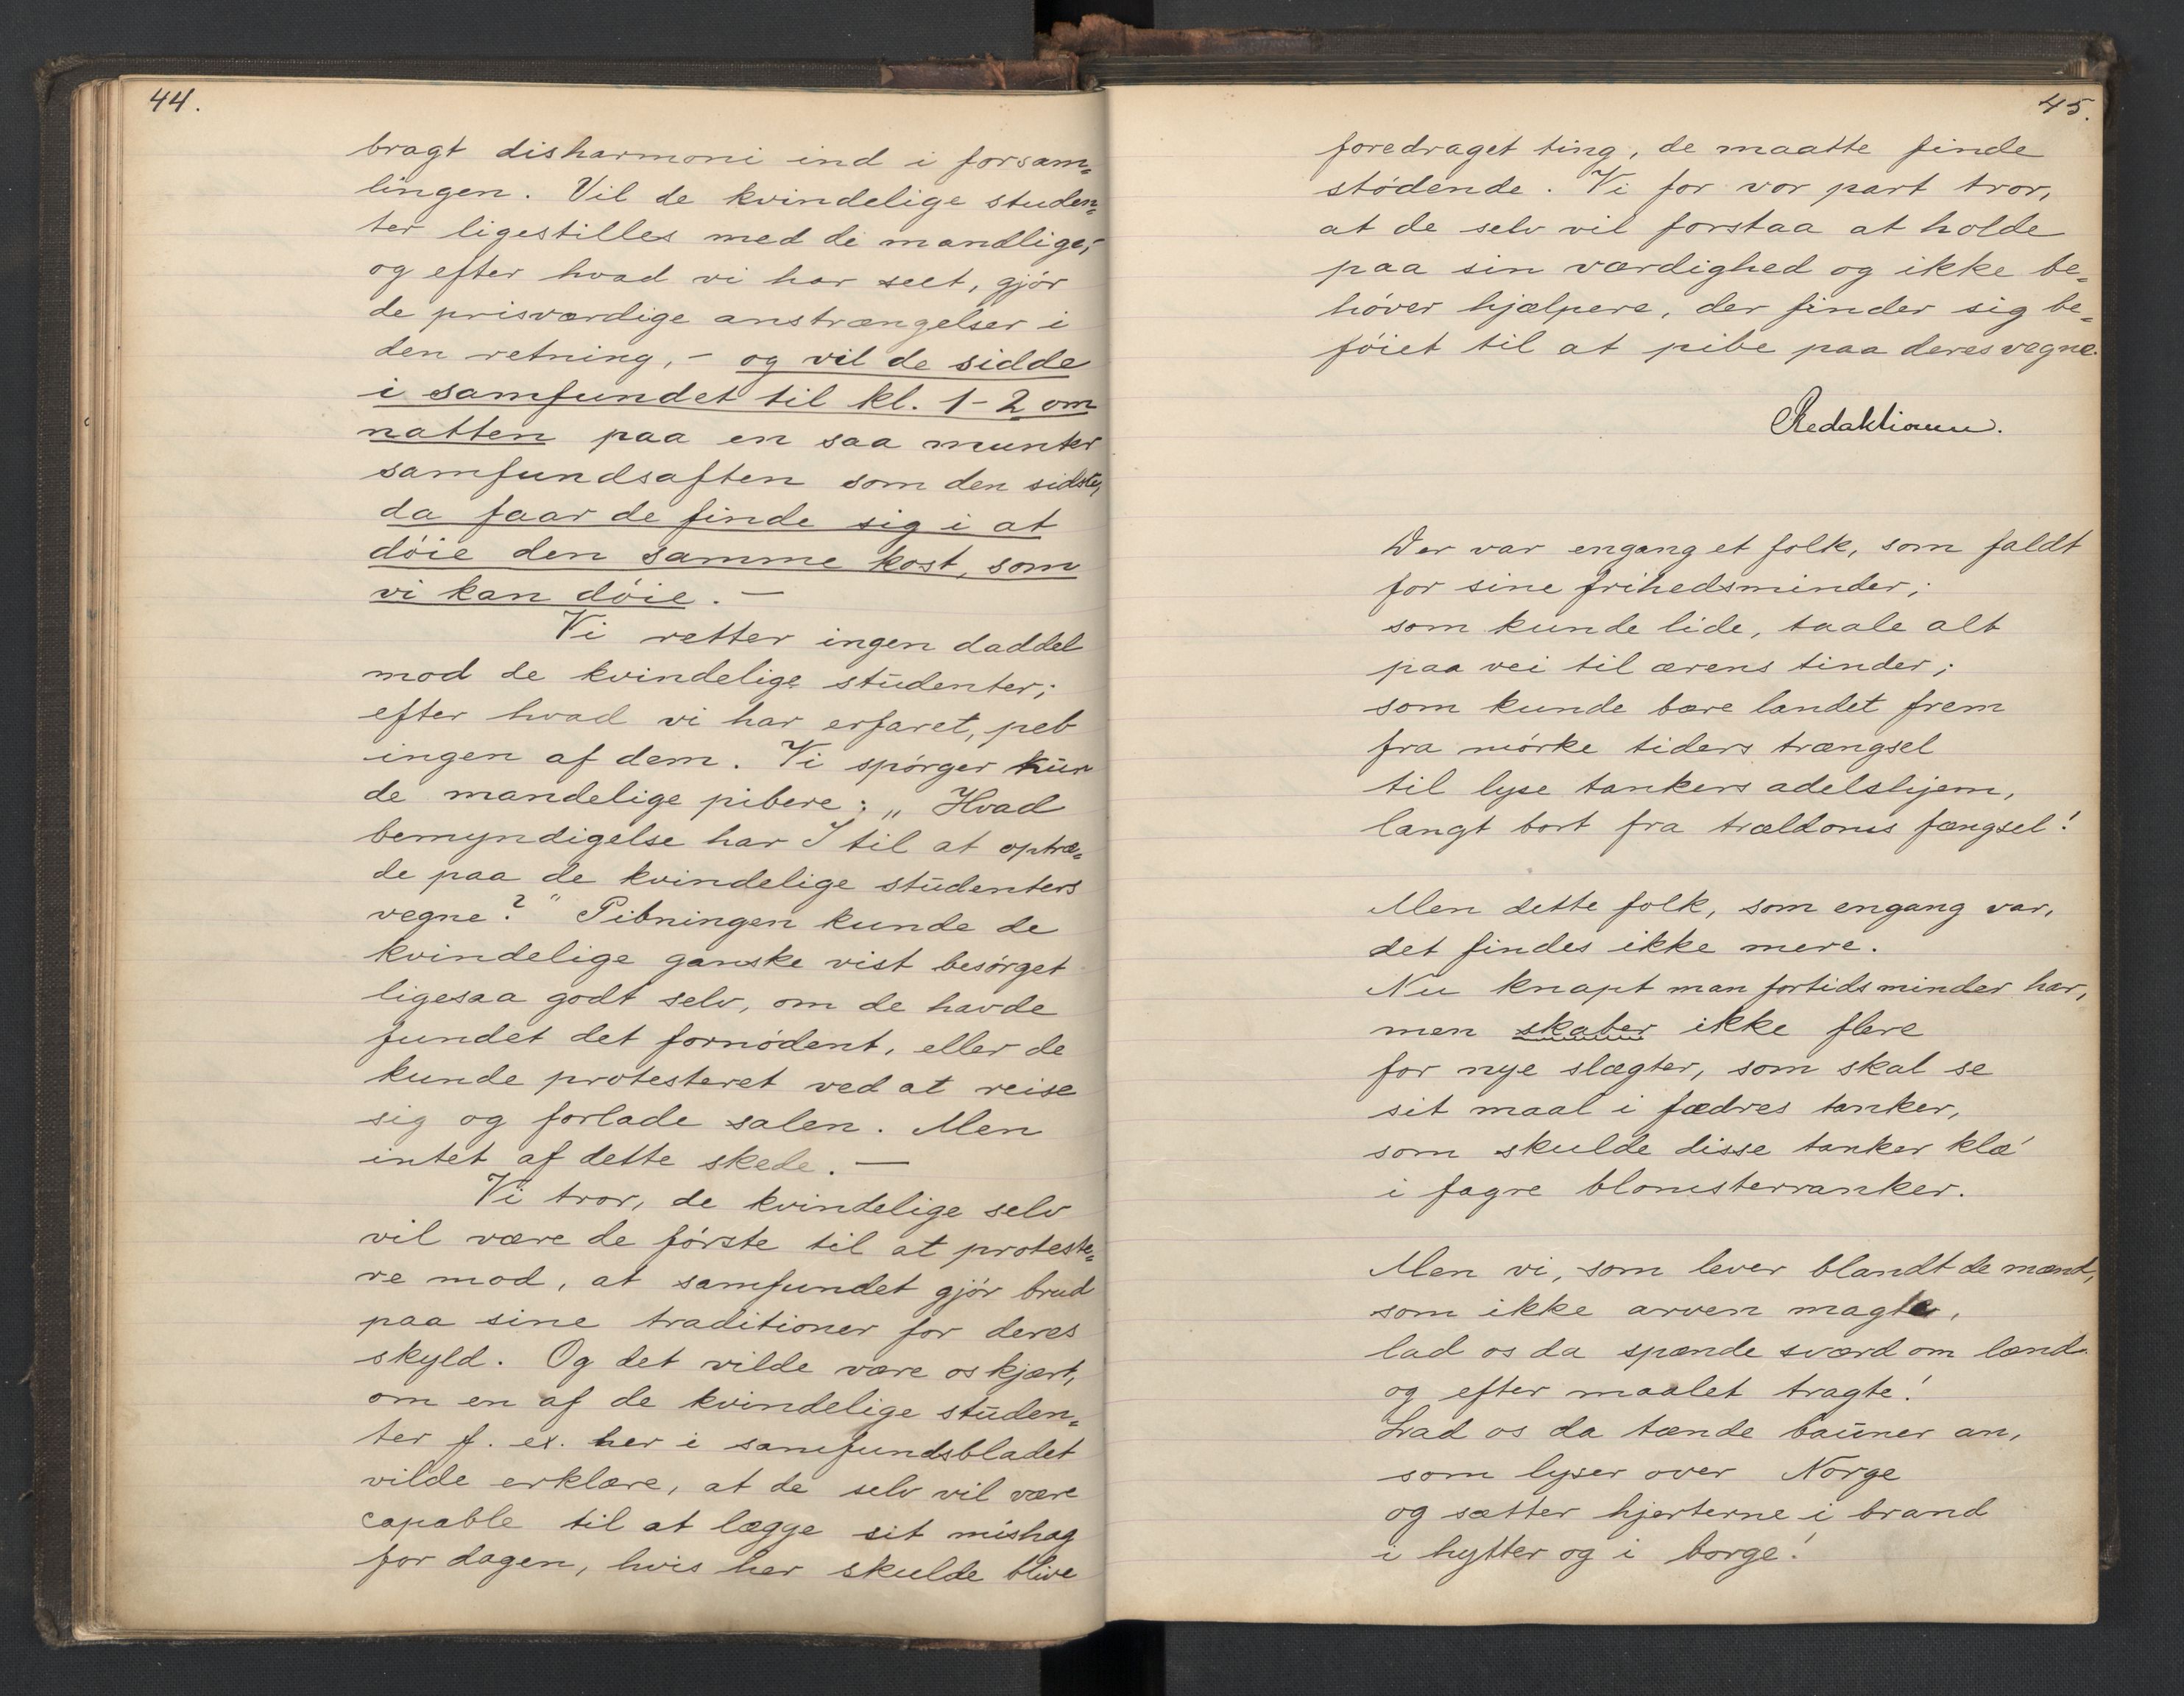 44.
bragt disharmoni ind i forsam=
lingen. Vil de kvindelige studen=
ter ligestilles med de mandlige,-
og efter hvad vi har seet, gjör
de prisværdige anstrængelser i
den retning, - og vil de sidde
i samfundet til kl. 1-2 om
natten paa en saa munter
samfundsaften som den sidste,
da faar de finde sig i at
döie den samme kost, som
vi kan döie. —
Vi retter ingen daddel
mod de kvindelige studenter;
efter hvad vi har erfaret, peb
ingen af dem. Vi spörger kun
de mandelige pibere: „Hvad
bemyndigelse har I til at optræ=
de paa de kvindelige studenters
vegne?" Pibningen kunde de
kvindelige ganske vist besörget
ligesaa godt selv, om de havde
fundet det fornödent, eller de
kunde protesteret ved at reise
sig og forlade salen. Men
intet af dette skede. —
Vi tror, de kvindelige selv
vil være de förste til at proteste=
re mod, at samfundet gjör brud
paa sine traditioner for deres
skyld. Og det vilde være os kjært,
om en af de kvindelige studen=
ter f. ex. her i samfundsbladet
vilde erklære, at de selv vil være
capable til at lægge sit mishag
for dagen, hvis her skulde blive
45.
foredraget ting, de maatte finde
stödende. Vi for vor part tror,
at de selv vil forstaa at holde
paa sin værdighed og ikke be=
höver hjælpere, der finder sig be=
föiet til at pibe paa deres vegne.
Redaktionen.
Der var engang et folk, som faldt
for sine frihedsminder;
som kunde lide, taale alt
paa vei til ærens tinder;
som kunde bære landet frem
fra mörke tiders trængsel
til lyse tankers adelshjem,
langt bort fra trældoms fængsel!
Men dette folk, som engang var,
det findes ikke mere.
Nu knapt man fortidsminder har,
men skaber ikke flere
for nye slægter, som skal se
sit maal i fædres tanker,
som skulde disse tanker klæ'
i fagre blomsterranker.
Men vi, som lever blandt de mænd,
som ikke arven magte,
lad os da spænde sværd om lænd
og efter maalet tragte!
Lad os da tænde bauner an,
som lyser over Norge
og sætter hjerterne i brand
i hytter og i borge!